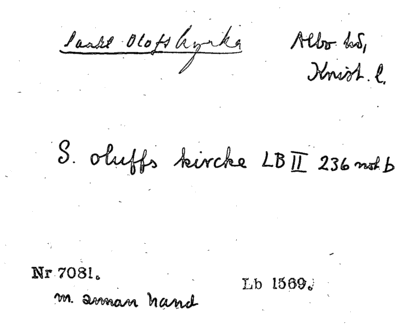 Sankt Olofs kyrka Albo hd,
Krist. l.
S. oluffs kircke LB II 236 not b
Nr 7081.
Lb 1569.
m. annan hand